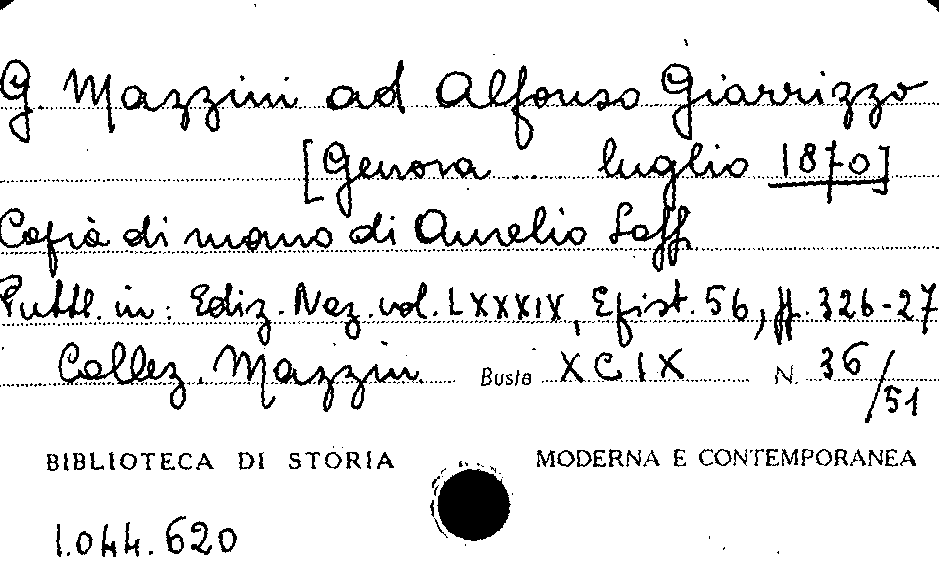 G. Mazzini ad Alfonso Giarrizzo
[Genova ... luglio 1870]
Copia di mano di Aurelio Saffi
Pubbl. in: Ediz. Naz. vol. LXXXIX, Epist. 56, pp. 326-27
Collez. Mazzini Busta XCIX N. 36/51
BIBLIOTECA DI STORIA MODERNA E CONTEMPORANEA
1.044.620